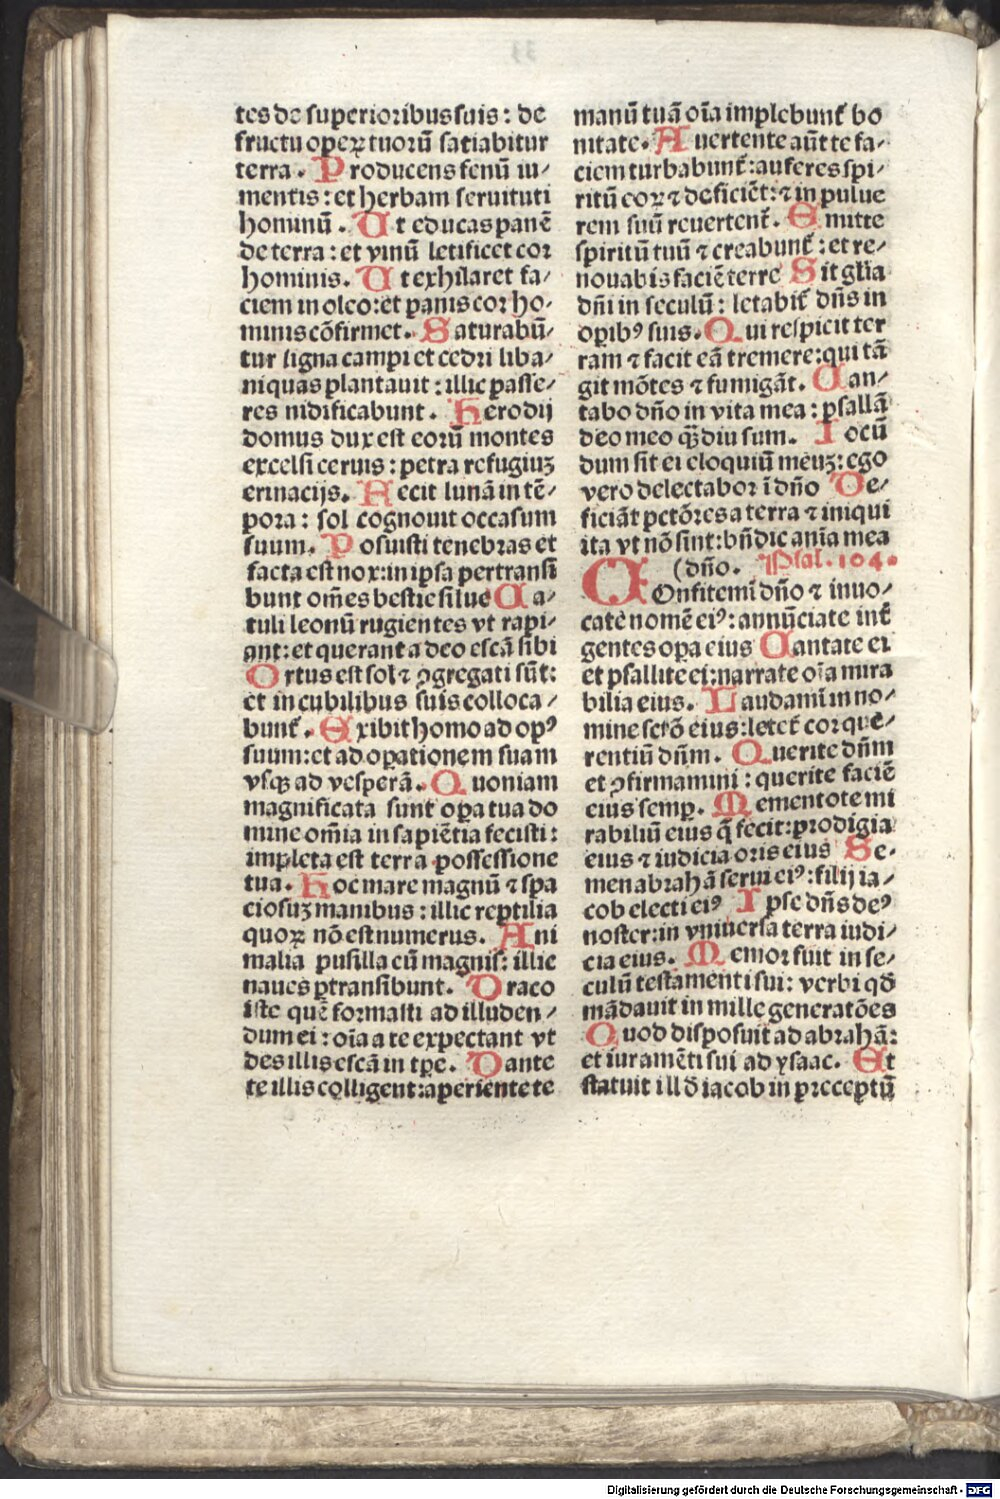 tes de superioribus suis: de
fructu operꝝ tuorū satiabitur
terra. Producens fenū iu-
mentis: et herbam seruituti
hominū. Ut educas panē
de terra: et vinū letificet cor
hominis. Ut exhilaret fa-
ciem in oleo: et panis cor ho-
minis cōfirmet. Saturabū-
tur ligna campi et cedri liba-
ni quas plantauit: illic passe-
res nidificabunt. Herodij
domus dux est eorū montes
excelsi ceruis: petra refugiuꝫ
erinacijs. Fecit lunā in tē-
pora: sol cognouit occasum
suum. Posuisti tenebras et
facta est nox: in ipsa pertransi
bunt om̄es bestie silue Ca-
tuli leonū rugientes vt rapi-
ant: et querant a deo escā sibi
Ortus est sol ⁊ ꝯgregati sūt:
et in cubilibus suis colloca-
bunt̄. Exibit homo ad opꝰ
suum: et ad oꝑationem suam
vsqꝫ ad vesperā. Quoniam
magnificata sunt oꝑa tua do
mine om̄ia in sapiētia fecisti:
impleta est terra possessione
tua. Hoc mare magnū ⁊ spa
ciosuꝫ manibus: illic reptilia
quoꝝ nō est numerus. Ani
malia pusilla cū magnis: illic
naues ꝑtransibunt. Draco
iste quē formasti ad illuden-
dum ei: oīa a te expectant vt
des illis escā in tꝑe. Dante
te illis colligent: aperiente te
manū tuā oīa implebunt̄ bo
nitate. Auertente aūt te fa-
ciem turbabunt̄: auferes spi-
ritū eoꝝ ⁊ deficiēt: ⁊ in pulue
rem suū reuertent̄. Emitte
spiritū tuū ⁊ creabunt̄: et re-
nouabis faciē terre Sit gl̄ia
dn̄i in seculū: letabit̄ dn̄s in
oꝑibꝰ suis. Qui respicit ter
ram ⁊ facit eā tremere: qui tā
git mōtes ⁊ fumigāt. Can-
tabo dn̄o in vita mea: psallā
deo meo qᷓdiu sum. Iocū
dum sit ei eloquiū meuꝫ: ego
vero delectabor ī dn̄o De-
ficiāt pctōres a terra ⁊ iniqui
ita vt nō sint: bn̄dic anīa mea
(dn̄o. Psal. 104.
COnfitemī dn̄o ⁊ inuo-
cate nomē eiꝰ: annūciate int̄
gentes oꝑa eius Cantate ei
et psallite ei: narrate oīa mira
bilia eius. Laudamī in no-
mine sctō eius: letet̄ cor quē-
rentiū dn̄m. Querite dn̄m
et ꝯfirmamini: querite faciē
eius semꝑ. Mementote mi
rabiliū eius q̄ fecit: prodigia
eius ⁊ iudicia oris eius Se-
men abrahā serui eiꝰ: filij ia-
cob electi eiꝰ Ipse dn̄s deꝰ
noster: in vniuersa terra iudi-
cia eius. Memor fuit in se-
culū testamenti sui: verbi qd̄
mādauit in mille generatōes
Quod disposuit ad abrahā:
et iuramēti sui ad ysaac. Et
statuit ill đ iacob in preceptū
Digitalisierung gefördert durch die Deutsche Forschungsgemeinschaft - DFG